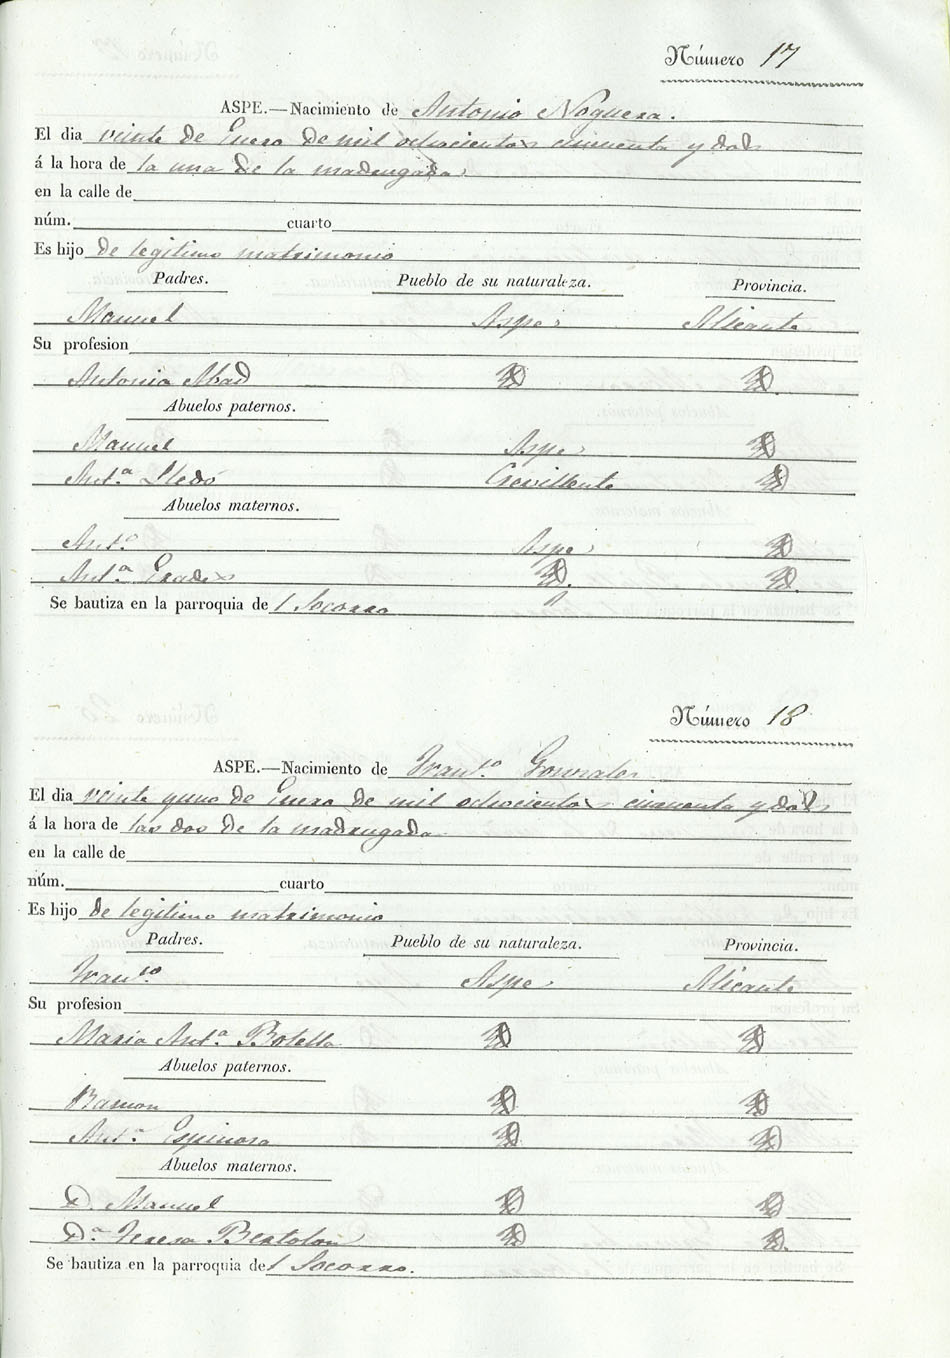 Número 17
ASPE.—Nacimiento de Antonio Noguera.
El dia veinte de Enero de mil ochocientos cincuenta y dos
á la hora de la una de la madrugada
en la calle de
núm. cuarto
Es hijo de legitimo matrimonio
Padres. Pueblo de su naturaleza. Provincia.
Manuel Aspe Alicante
Su profesion
Antonia Abad
Abuelos paternos.
Manuel Aspe
Antª Lledó Crevillente
Abuelos maternos.
Antº Aspe
Antª
Se bautiza en la parroquia de l Socorro
Número 18
ASPE.—Nacimiento de Franco Gonzales
El dia veinte y uno de Enero de mil ochocientos cincuenta y dos
á la hora de las dos de la madrugada
en la calle de
núm. cuarto
Es hijo de legitimo matrimonio
Padres. Pueblo de su naturaleza. Provincia.
Franco Aspe Alicante
Su profesion
Maria Antª Botella
Abuelos paternos.
Ramon
Antª Espinosa
Abuelos maternos.
D. Manuel
Dª Teresa
Se bautiza en la parroquia de l Socorro.